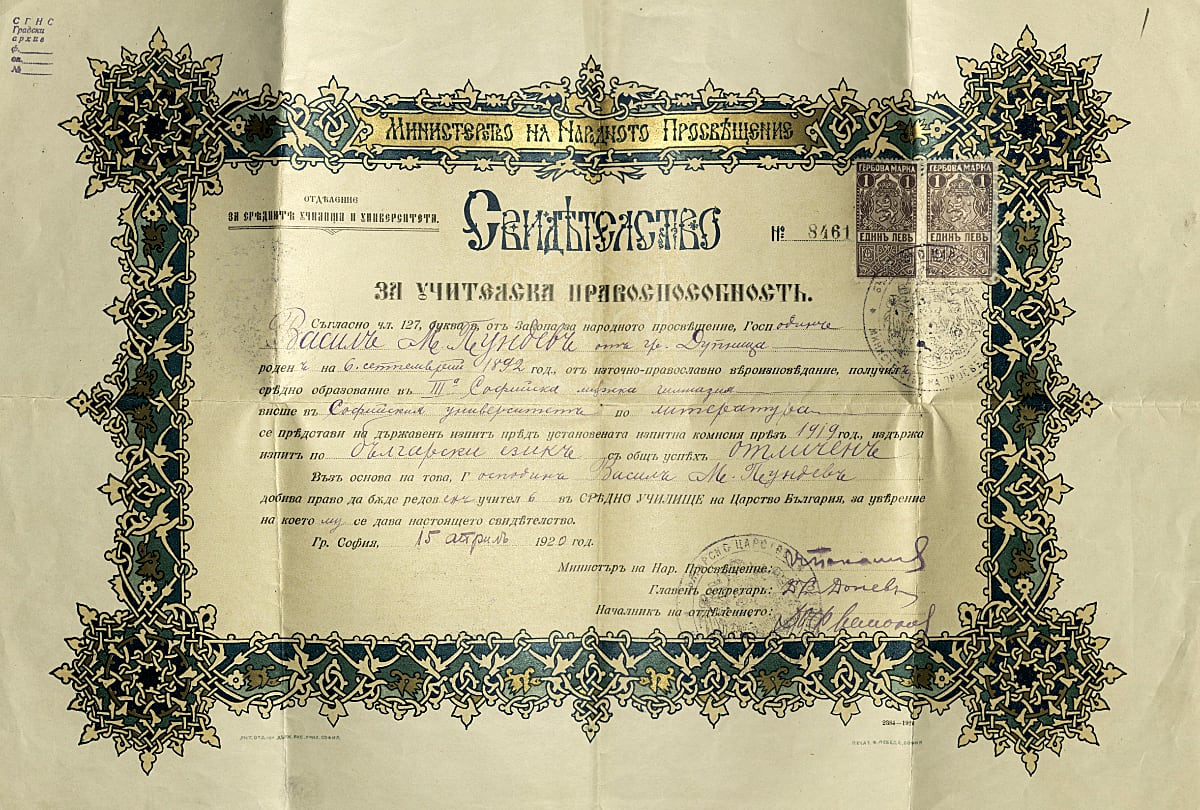 СГНС
Градски
архив
ф.
оп.
№
Министерство на Народното Просвѣщение
ОТДѢЛЕНИЕ
ЗА СРѢДНИТѢ УЧИЛИЩА И УНИВЕРСИТЕТА.
Свидѣтелство
№ 8461
ГЕРБОВА МАРКА ГЕРБОВА МАРКА
1 1 1 1
ЕДИНЪ ЛЕВЪ ЕДИНЪ ЛЕВЪ
ЗА УЧИТЕЛСКА ПРАВОСПОСОБНОСТЬ.
Съгласно чл. 127, буква в, от Закона за народното просвѣщение, Господинъ
Василъ М. Пундевъ отъ гр. Дупница
роденъ на 6. септемврий 1892 год., отъ източно-православно вѣроизповѣдание, получилъ
срѣдно образование въ IIIа Софийска мѫжка гимназия
висше въ Софийския университетъ по литература
се прѣдстави на държавенъ изпитъ прѣдъ установената изпитна комисия прѣзъ 1919 год., издържа
изпитъ по български езикъ съ общъ успѣхъ отличенъ
Възъ основа на това, Господинъ Василъ М. Пундевъ
добива право да бѫде редовенъ учител въ СРѢДНО УЧИЛИЩЕ на Царство България, за увѣрение
на което му се дава настоящето свидѣтелство.
Гр. София, 15 априлъ 1920 год.
Министъръ на Нар. Просвѣщение:
Главенъ секретарь:
Началникъ на отдѣлението:
ПЕЧАТ. Ф. ЛЕБЕДА, СОФИЯ